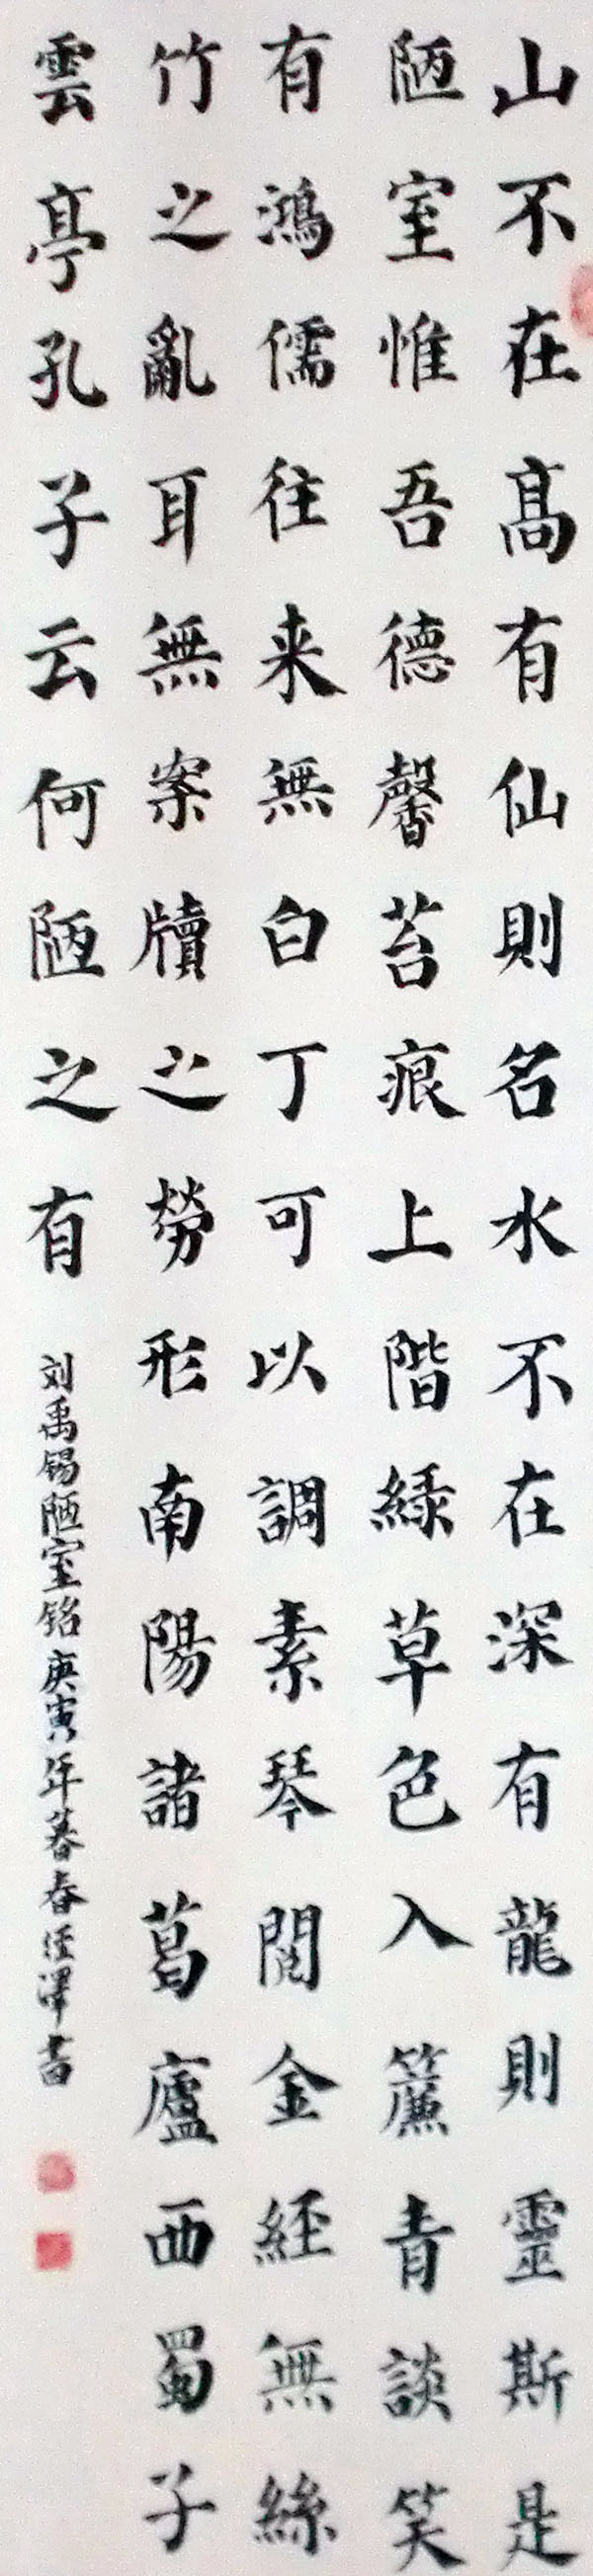 山不在高有仙則名水不在深有龍則靈斯是
陋室惟吾德馨苔痕上階緑草色入簾青談笑
有鴻儒往来無白丁可以調素琴閱金經無絲
竹之亂耳無案牘之勞形南陽諸葛廬西蜀子
雲亭孔子云何陋之有
刘禹锡陋室铭庚寅年暮春径澤書